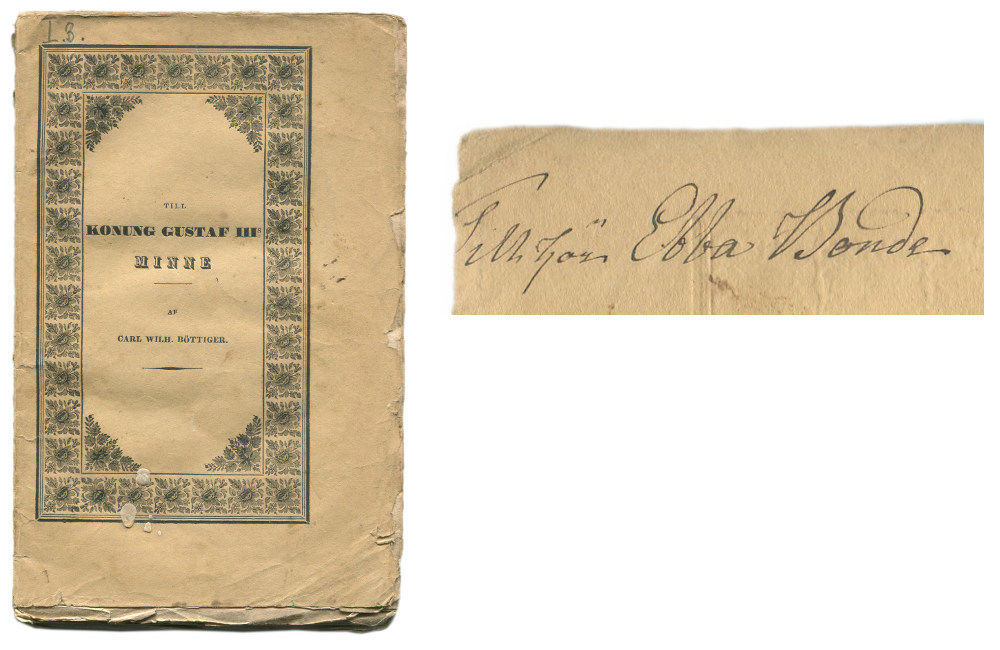 I.8.
TILL
KONUNG GUSTAF IIIS
MINNE
AF
CARL WILH. BÖTTIGER.
Tillhör Ebba Bonde